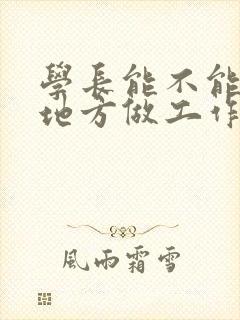 學長能不能
地方做工作
風雨霜雪